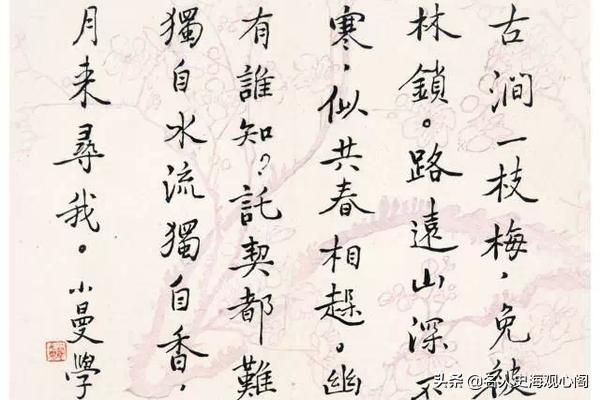 古澗一枝梅，免被
林鎖。路遠山深不
寒，似共春相趓。幽
有誰知？託契都難
獨自水流獨自香，
月来尋我。小曼學
头条 @名人史海观心阁